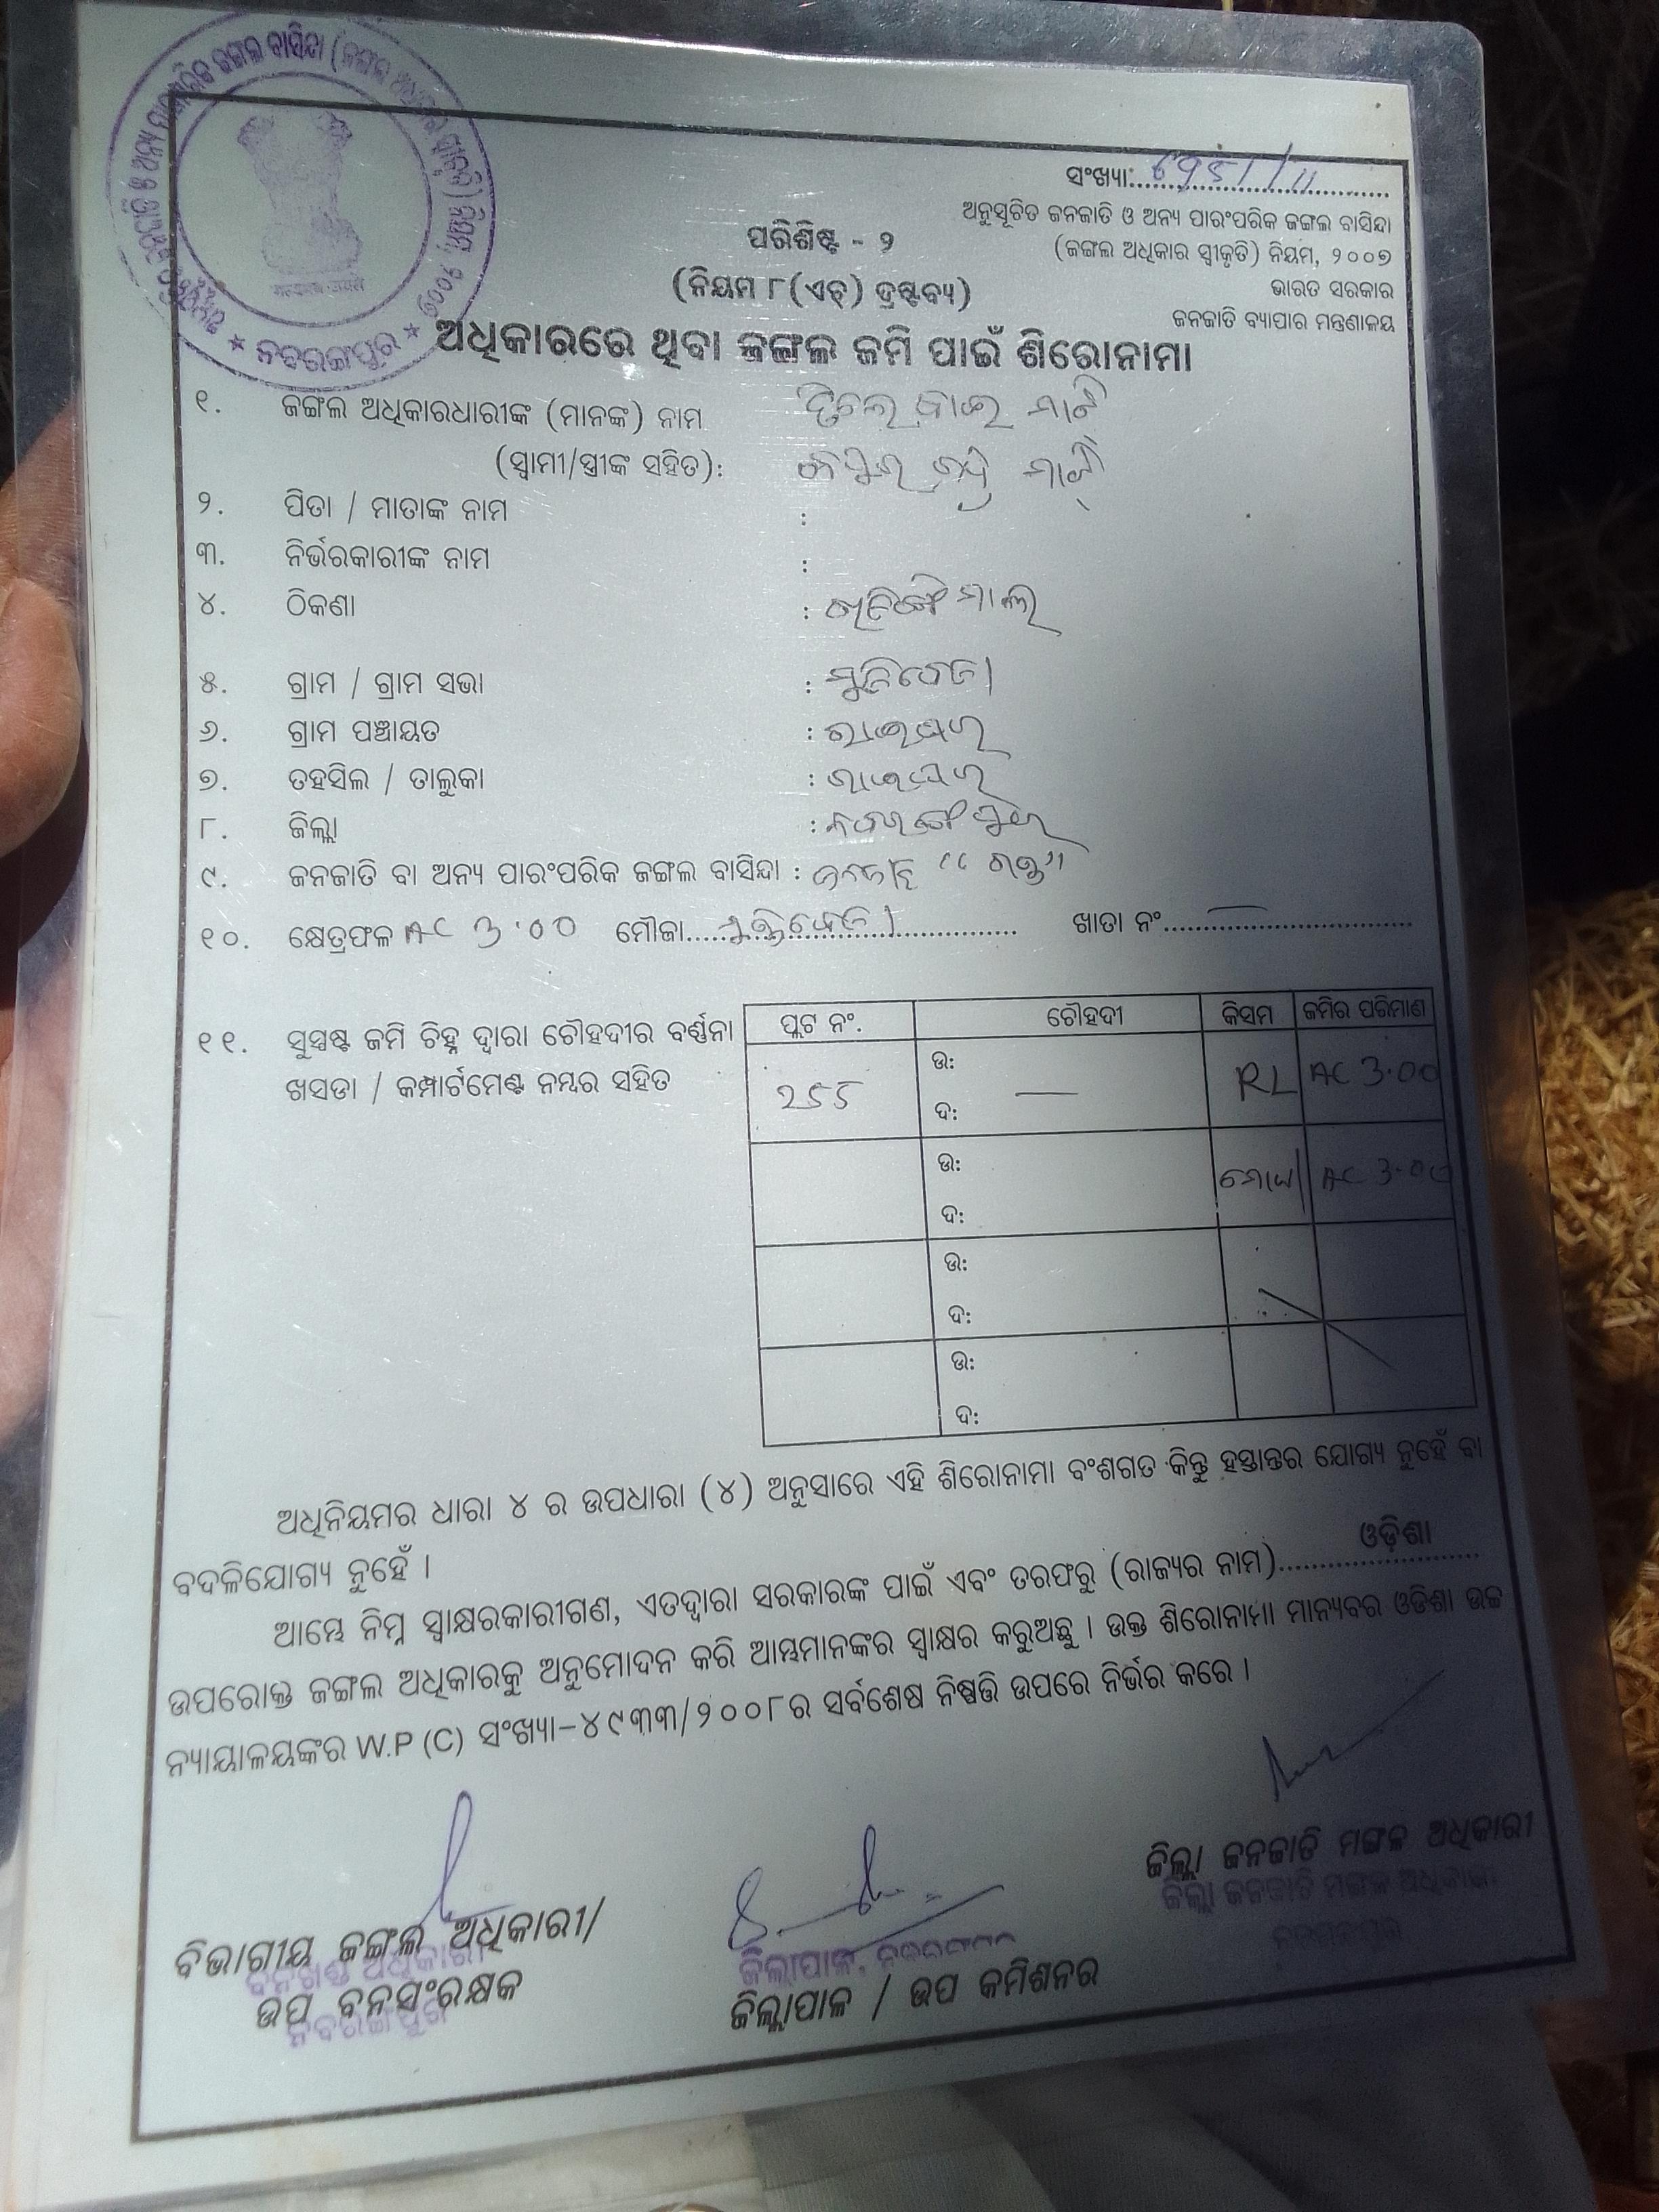 ଅନୁସୂଚିତ ଜନଜାତି ଓ ଅନ୍ୟ ପାରଂପରିକ ଜଙ୍ଗଲ ବାସିନ୍ଦା (ଜଙ୍ଗଲ ଅଧିକାର ସ୍ୱୀକୃତି) ନିୟମ, ୨୦୦୭
★ ନବରଙ୍ଗପୁର ★
ସଂଖ୍ୟା:
ଅନୁସୂଚିତ ଜନଜାତି ଓ ଅନ୍ୟ ପାରଂପରିକ ଜଙ୍ଗଲ ବାସିନ୍ଦା
(ଜଙ୍ଗଲ ଅଧିକାର ସ୍ୱୀକୃତି) ନିୟମ, ୨୦୦୭
ଭାରତ ସରକାର
ଜନଜାତି ବ୍ୟାପାର ମନ୍ତ୍ରଣାଳୟ
ପରିଶିଷ୍ଟ - ୨
(ନିୟମ ୮(ଏଚ୍) ଦ୍ରଷ୍ଟବ୍ୟ)
ଅଧିକାରରେ ଥିବା ଜଙ୍ଗଲ ଜମି ପାଇଁ ଶିରୋନାମା
୧. ଜଙ୍ଗଲ ଅଧିକାରଧାରୀଙ୍କ (ମାନଙ୍କ) ନାମ
(ସ୍ୱାମୀ/ସ୍ତ୍ରୀଙ୍କ ସହିତ):
୨. ପିତା / ମାତାଙ୍କ ନାମ :
୩. ନିର୍ଭରକାରୀଙ୍କ ନାମ :
୪. ଠିକଣା :
୫. ଗ୍ରାମ / ଗ୍ରାମ ସଭା :
୬. ଗ୍ରାମ ପଞ୍ଚାୟତ : ରାଇଘର
୭. ତହସିଲ / ତାଲୁକା : ରାଇଘର
୮. ଜିଲ୍ଲା : ନବରଙ୍ଗପୁର
୯. ଜନଜାତି ବା ଅନ୍ୟ ପାରଂପରିକ ଜଙ୍ଗଲ ବାସିନ୍ଦା : "ଗଣ୍ଡ"
୧୦. କ୍ଷେତ୍ରଫଳ AC 3.00 ମୌଜା ଖାତା ନଂ
୧୧. ସୁସ୍ପଷ୍ଟ ଜମି ଚିହ୍ନ ଦ୍ୱାରା ଚୌହଦୀର ବର୍ଣ୍ଣନା
ଖସଡା / କମ୍ପାର୍ଟମେଣ୍ଟ ନମ୍ବର ସହିତ
ପ୍ଲଟ ନଂ. ଚୌହଦୀ କିସମ ଜମିର ପରିମାଣ
255 ଉ: — RL AC 3.00
ଦ:
ଉ: ମୋଟ AC 3.00
ଦ:
ଉ:
ଦ:
ଉ:
ଦ:
ଅଧିନିୟମର ଧାରା ୪ ର ଉପଧାରା (୪) ଅନୁସାରେ ଏହି ଶିରୋନାମା ବଂଶଗତ କିନ୍ତୁ ହସ୍ତାନ୍ତର ଯୋଗ୍ୟ ନୁହେଁ ବା
ବଦଳିଯୋଗ୍ୟ ନୁହେଁ ।
ଆମ୍ଭେ ନିମ୍ନ ସ୍ୱାକ୍ଷରକାରୀଗଣ, ଏତଦ୍ୱାରା ସରକାରଙ୍କ ପାଇଁ ଏବଂ ତରଫରୁ (ରାଜ୍ୟର ନାମ) ଓଡ଼ିଶା
ଉପରୋକ୍ତ ଜଙ୍ଗଲ ଅଧିକାରକୁ ଅନୁମୋଦନ କରି ଆମ୍ଭମାନଙ୍କର ସ୍ୱାକ୍ଷର କରୁଅଛୁ । ଉକ୍ତ ଶିରୋନାମା ମାନ୍ୟବର ଓଡିଶା ଉଚ୍ଚ
ନ୍ୟାୟାଳୟଙ୍କର W.P (C) ସଂଖ୍ୟା-୪୯୩୩/୨୦୦୮ର ସର୍ବଶେଷ ନିଷ୍ପତ୍ତି ଉପରେ ନିର୍ଭର କରେ ।
ଜିଲ୍ଲା ଜନଜାତି ମଙ୍ଗଳ ଅଧିକାରୀ
ଜିଲ୍ଲା ଜନଜାତି ମଙ୍ଗଳ ଅଧିକାରୀ
ନବରଙ୍ଗପୁର
ବିଭାଗୀୟ ଜଙ୍ଗଲ ଅଧିକାରୀ/
ବନଖଣ୍ଡ ଅଧିକାରୀ
ଉପ ବନସଂରକ୍ଷକ
ନବରଙ୍ଗପୁର
ଜିଲ୍ଲାପାଳ, ନବରଙ୍ଗପୁର
ଜିଲ୍ଲାପାଳ / ଉପ କମିଶନର